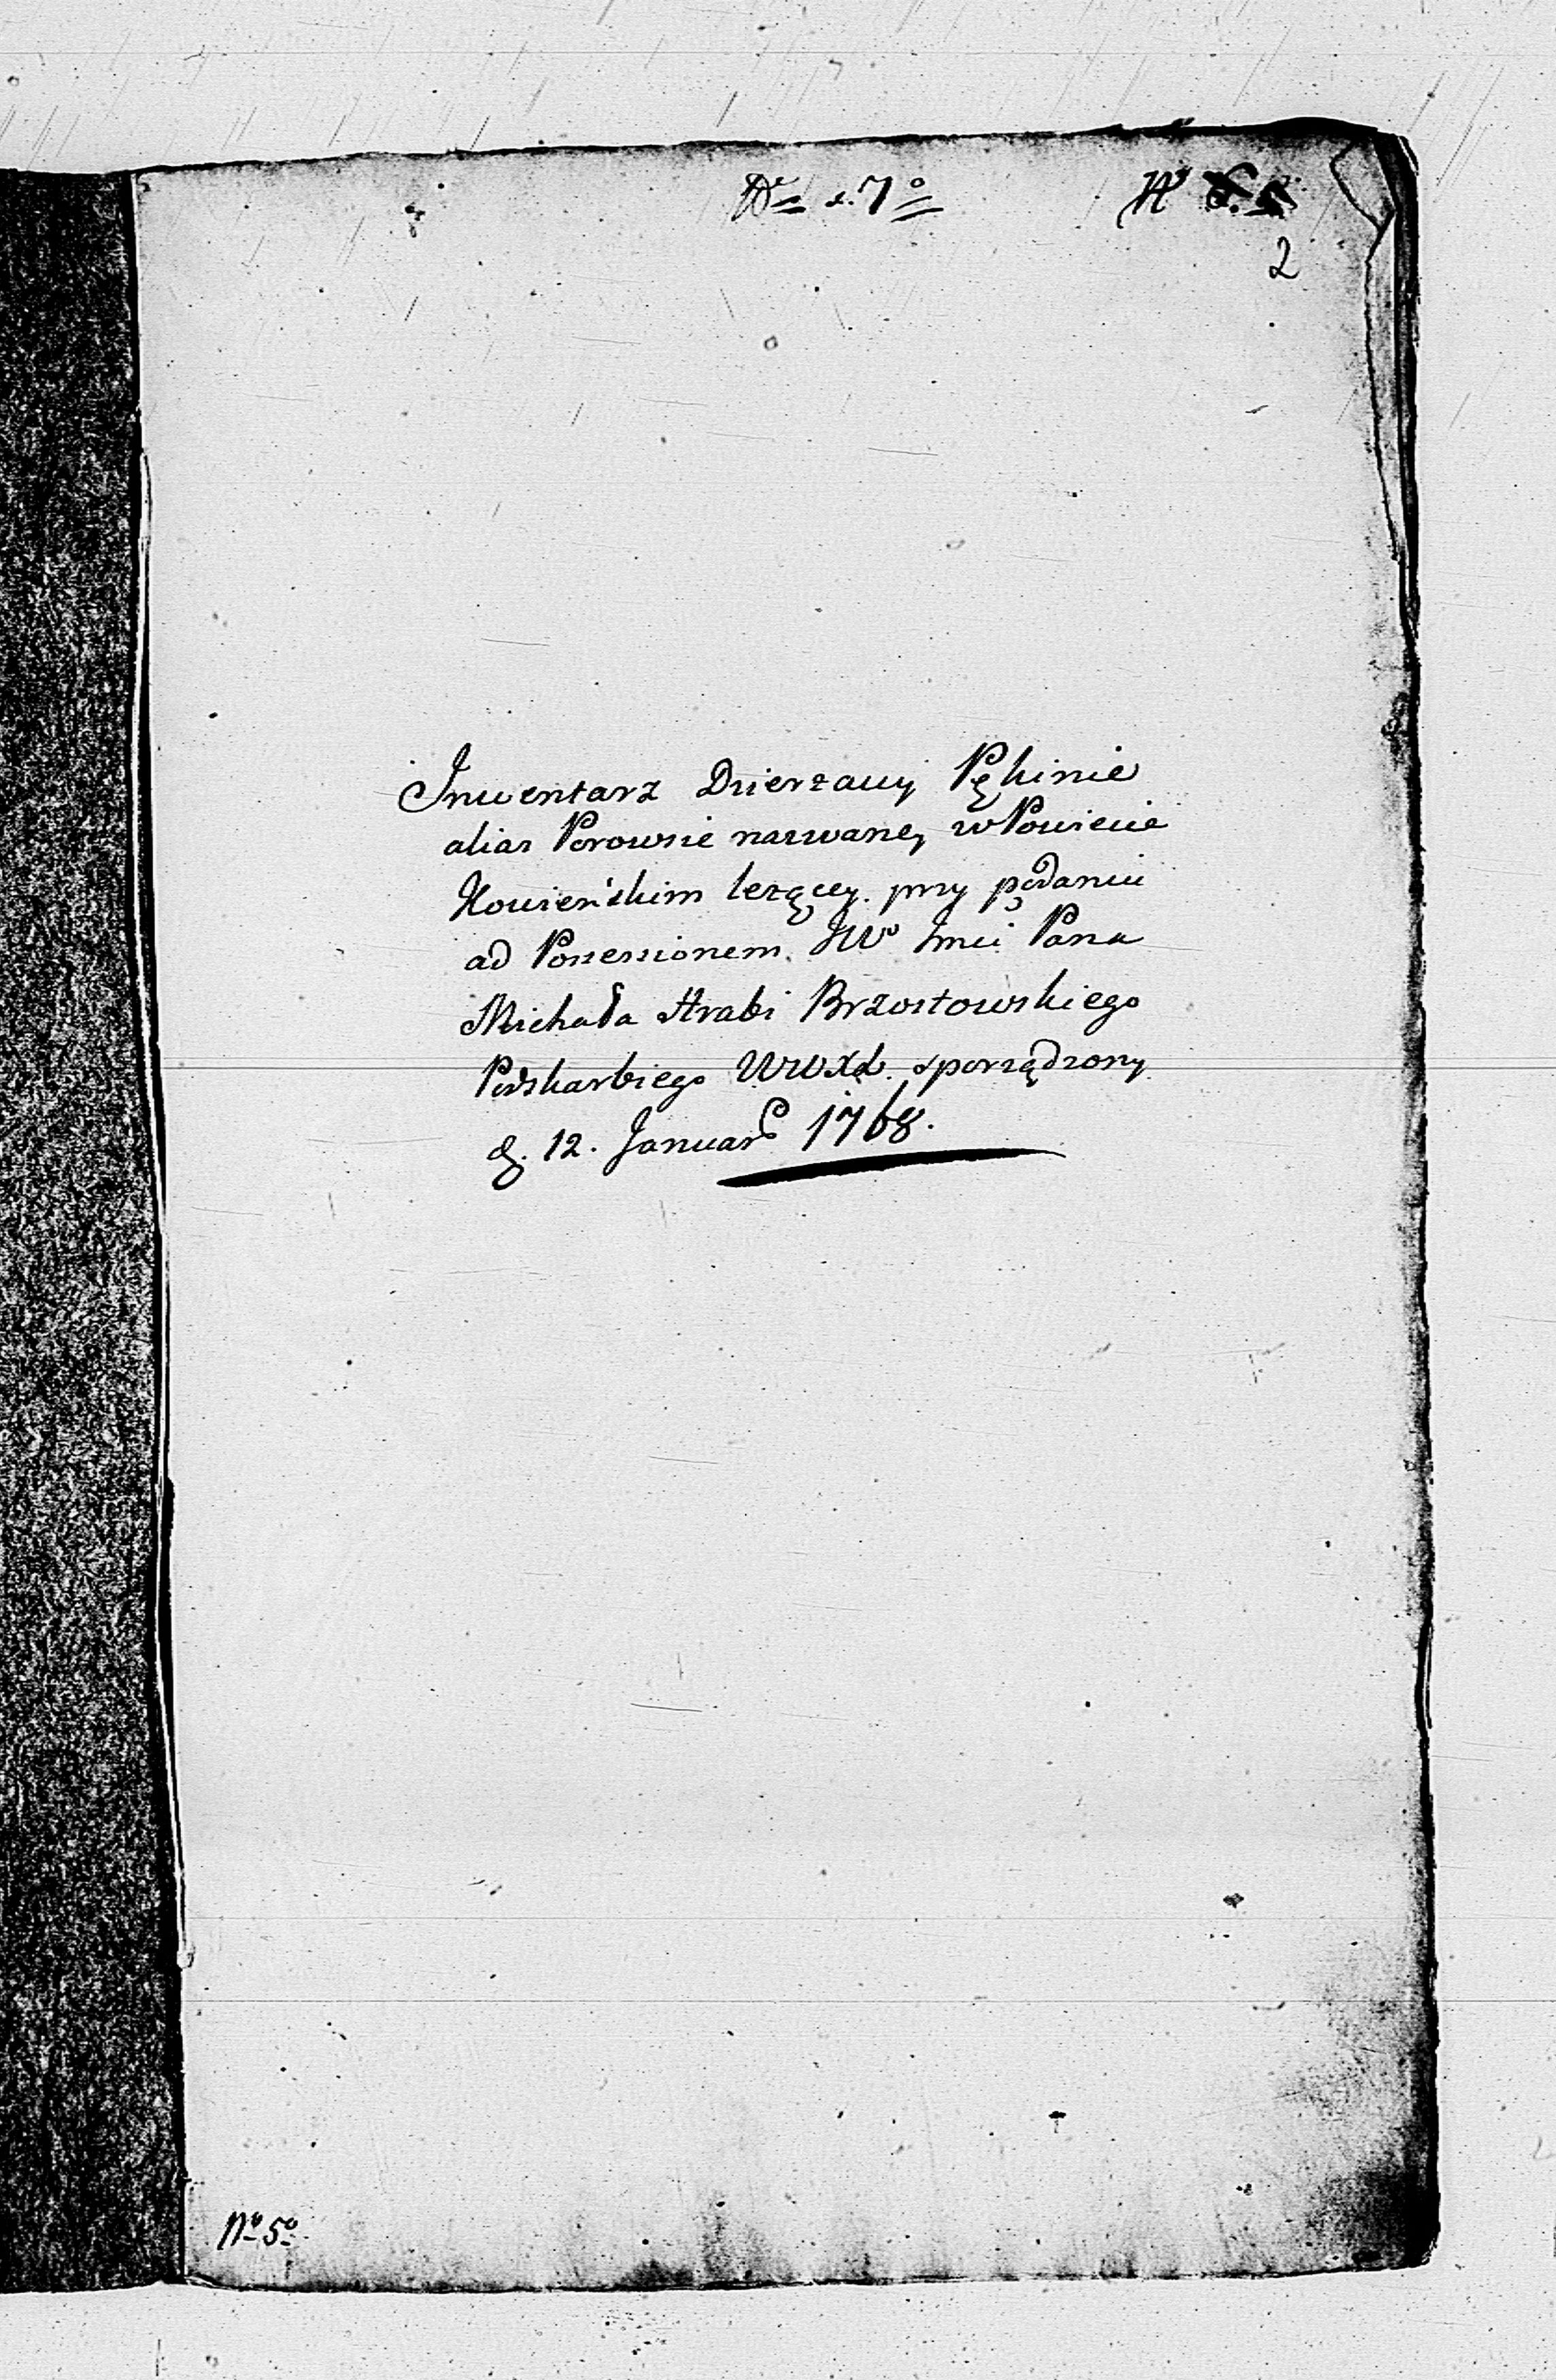 7o
No
2
Inwentarz Dzierzawy Pękinie
alias Porowsie nazwaney w Powiecie
Kowieńskim lezącey przy podaniu
ad Possessionem JWo Jmci Pana
Michała Hrabi Brzostowskiego
Podskarbiego WWXL sporządzony
d. 12. Januar 1768.
No 5o